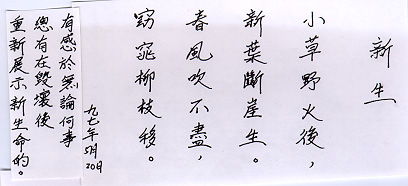 新生
小草野火後，
新葉斷崖生。
春風吹不盡，
窈窕柳枝移。
九七年5月20日
有感於無論何事
總有在毀壞後
重新展示新生命的。